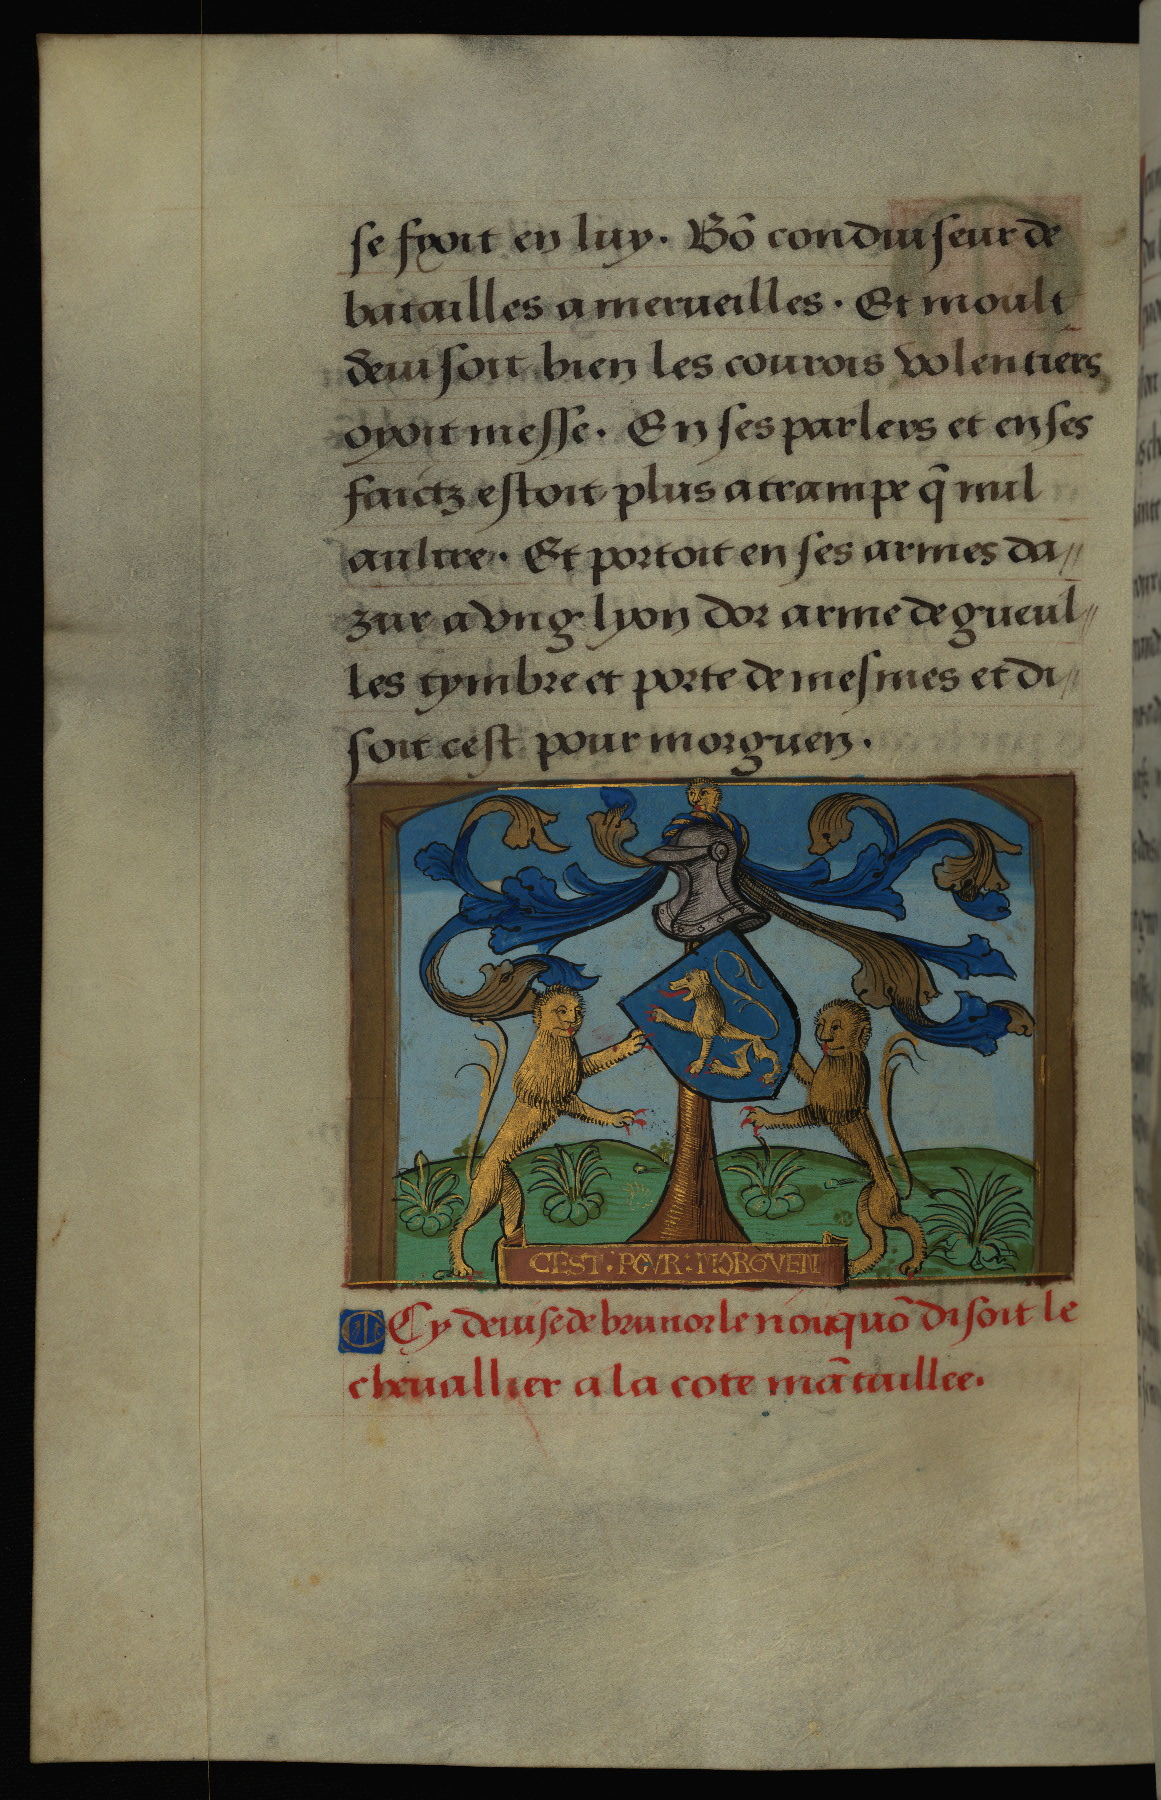 se fyoit en luy. Bõ conduiseur de
batailles a merueilles. Et moult
deuisoit bien les courois volentiers
oyoit messe. En ses parlers et en ses
faictz estoit plus atrampe q̃ nul
aultre. Et portoit en ses armes da//
zur a vng lyon dor arme de gueul//
les tymbre et porte de mesmes et di//
soit cest pour morguen.
CEST : POVR : MORGVEN
Cy deuise de brunor le noir quõ disoit le
cheuallier a la cote mãtaillee.